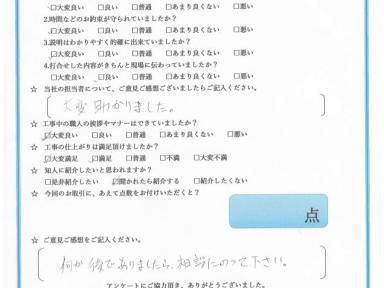 □大変良い □良い □普通 □あまり良くない □悪い
2.時間などのお約束が守られていましたか?
□大変良い □良い □普通 □あまり良くない □悪い
3.説明はわかりやすく的確に出来ていましたか?
□大変良い □良い □普通 □あまり良くない □悪い
4.打合せした内容がきちんと現場に伝わっていましたか?
□大変良い □良い □普通 □あまり良くない □悪い
☆ 当社の担当者について、ご意見ご感想ございましたらご記入ください。
大変助かりました。
☆ 工事中の職人の挨拶やマナーはできていましたか?
☑大変良い □良い □普通 □あまり良くない □悪い
☆ 工事の仕上がりは満足頂けましたか?
□大変満足 ☑満足 □普通 □不満 □大変不満
☆ 知人に紹介したいと思われますか?
□是非紹介したい ☑聞かれたら紹介する □紹介したくない
☆ 今回のお取引に、あえて点数をお付けいただくと?
点
☆ ご意見ご感想をご記入ください。
何か後でありましたら、相談にのって下さい。
アンケートにご協力頂き、ありがとうございました。